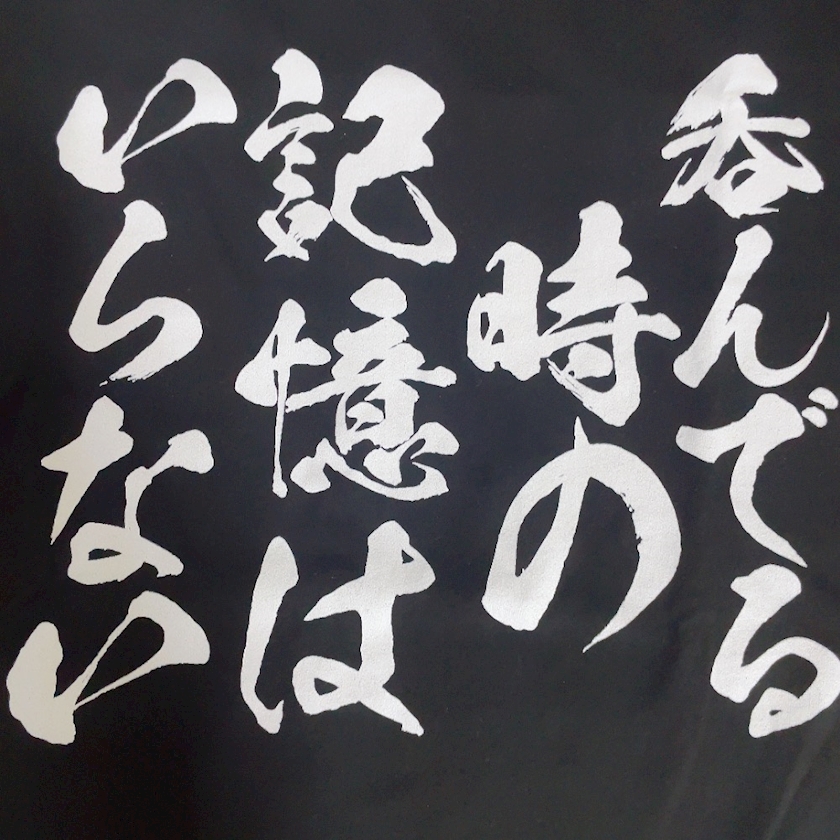 呑んでる
時の
記憶は
いらない